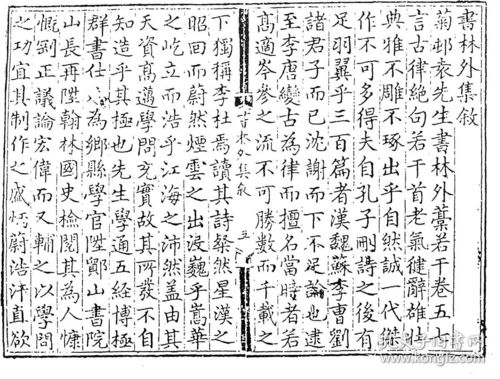 書林外集敘
菊邨袁先生書林外藁若干卷五七
言古律絕句若干首老氣健辭雄壮
典雅不雕不琢出乎自然誠一代傑
作不可多得夫自孔子刪詩之後有
足羽翼乎三百篇者漢魏蘇李曹劉
諸君子而已沈謝而下不足論也逮
至李唐變古為律而擅名當時者若
高適岑參之流不可勝數而千載之
書林外集敘
下獨稱李杜焉讀其詩粲然星漢之
昭回而蔚然煙雲之出沒巍乎嵩華
之屹立而浩乎江海之沛然盖由其
天資高邁學問充實故其所發不自
知造乎其極也先生學通五經博極
群書仕為鄉縣學官陞鄮山書院
山長再陞翰林國史檢閱其為人慷
慨剛正議論宏偉而又輔之以學問
之功宜其制作之盛炳蔚浩汗直欲
孔夫子旧书网
www.kongfz.com